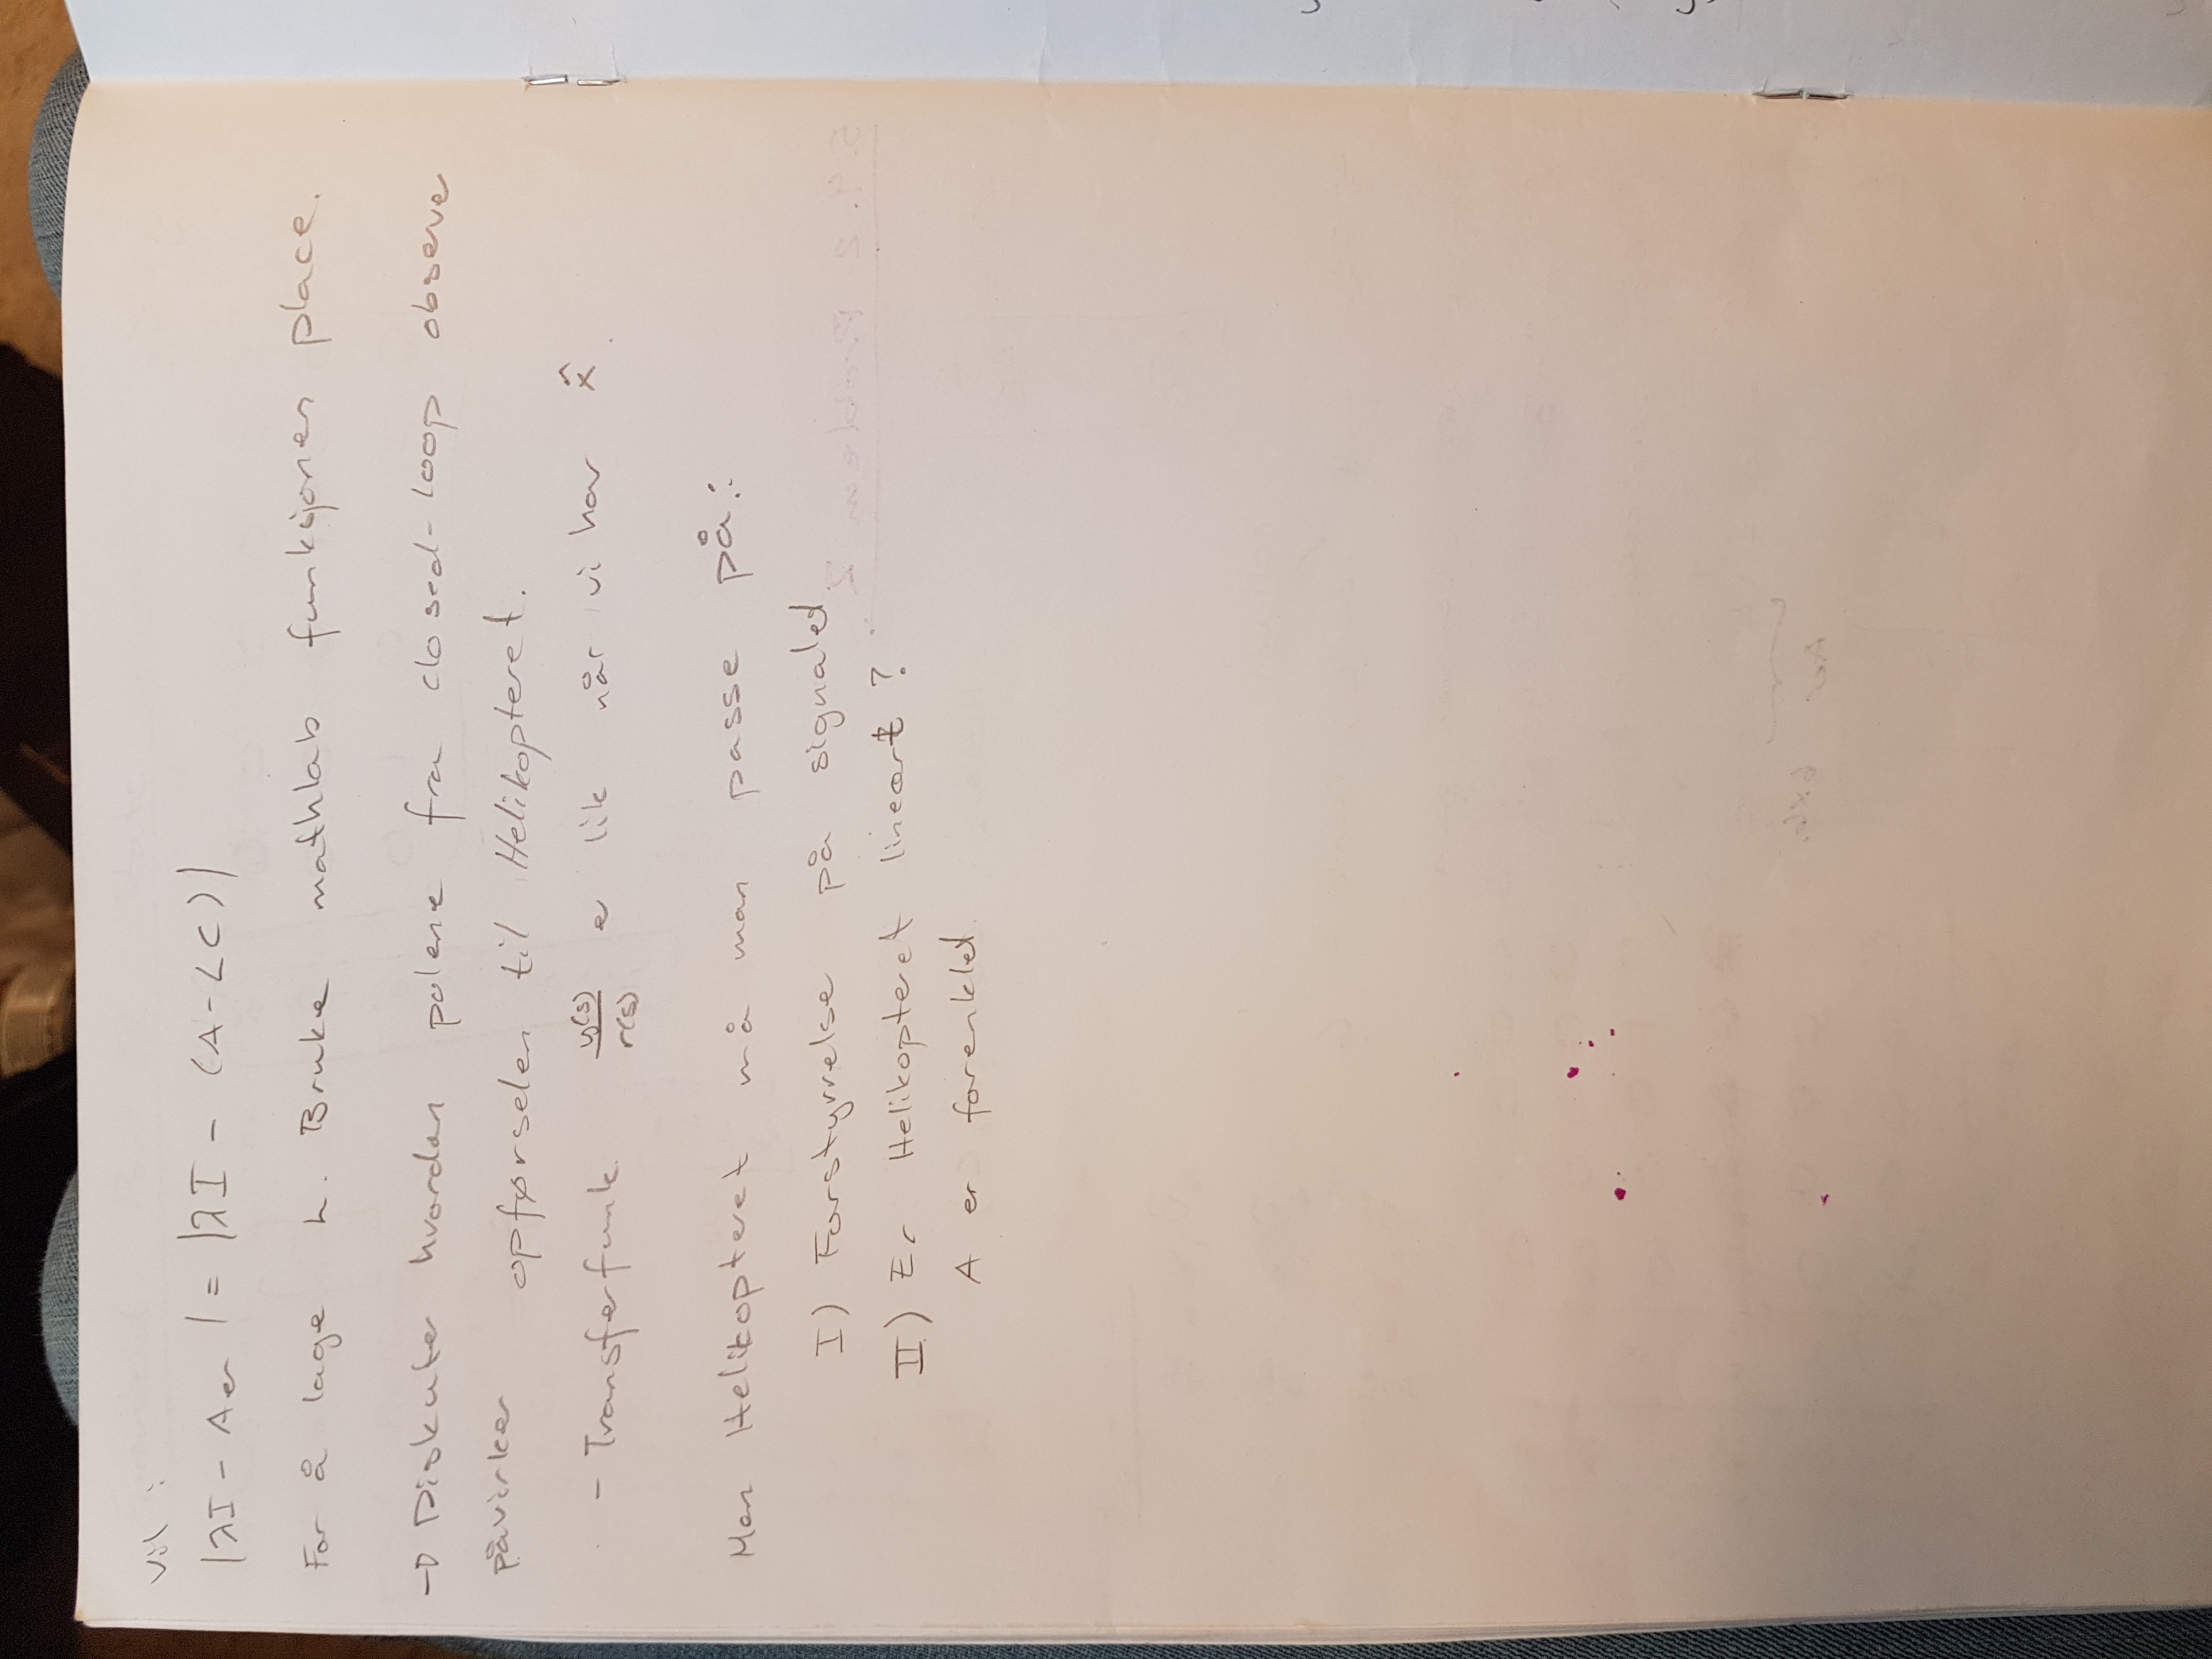 Vil :
|λI - Aer| = |λI - (A-LC)|
For å lage L. Bruke mathlab funksjonen place.
→ Diskuter hvordan polene fra closed-loop observer
påvirker opførselen til Helikopteret.
- Transferfunk y(s)/r(s) er lik når vi har x̂.
Men Helikopteret må man passe på:
I) Forstyrrelse på signalet.
II) Er Helikopteret lineært ?
A er forenklet.
5.4.2 Problem 2